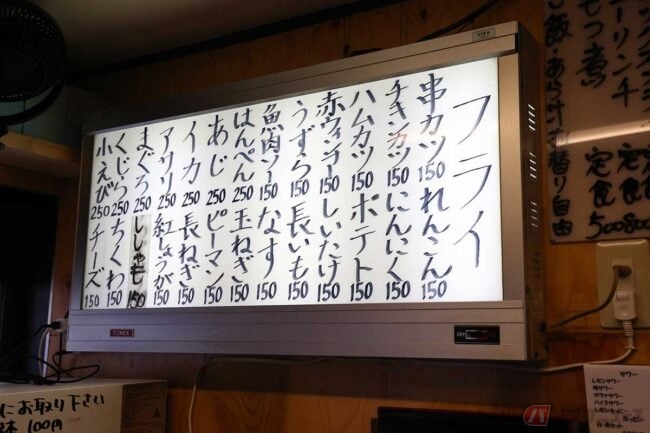 フライ
串カツ 150
チキンカツ 150
ハムカツ 150
赤ウィンナー 150
うずら 150
魚肉ソー 150
はんぺん 250
あじ 250
イカ 250
アサリ 250
まぐろ 250
くじら 250
小えび 250
れんこん 150
にんにく 150
ポテト 150
しいたけ 150
長いも 150
なす 150
玉ねぎ 150
ピーマン 150
長ねぎ 150
紅しょうが 150
ししゃも 150
ちくわ 150
チーズ 150
定食 800
もつ煮 定食 500
ご飯・あら汁お替り自由
OFF
にお取り下さい
100円
サワー
レモンサワー
梅サワー
ガラナサワー
ホッピー